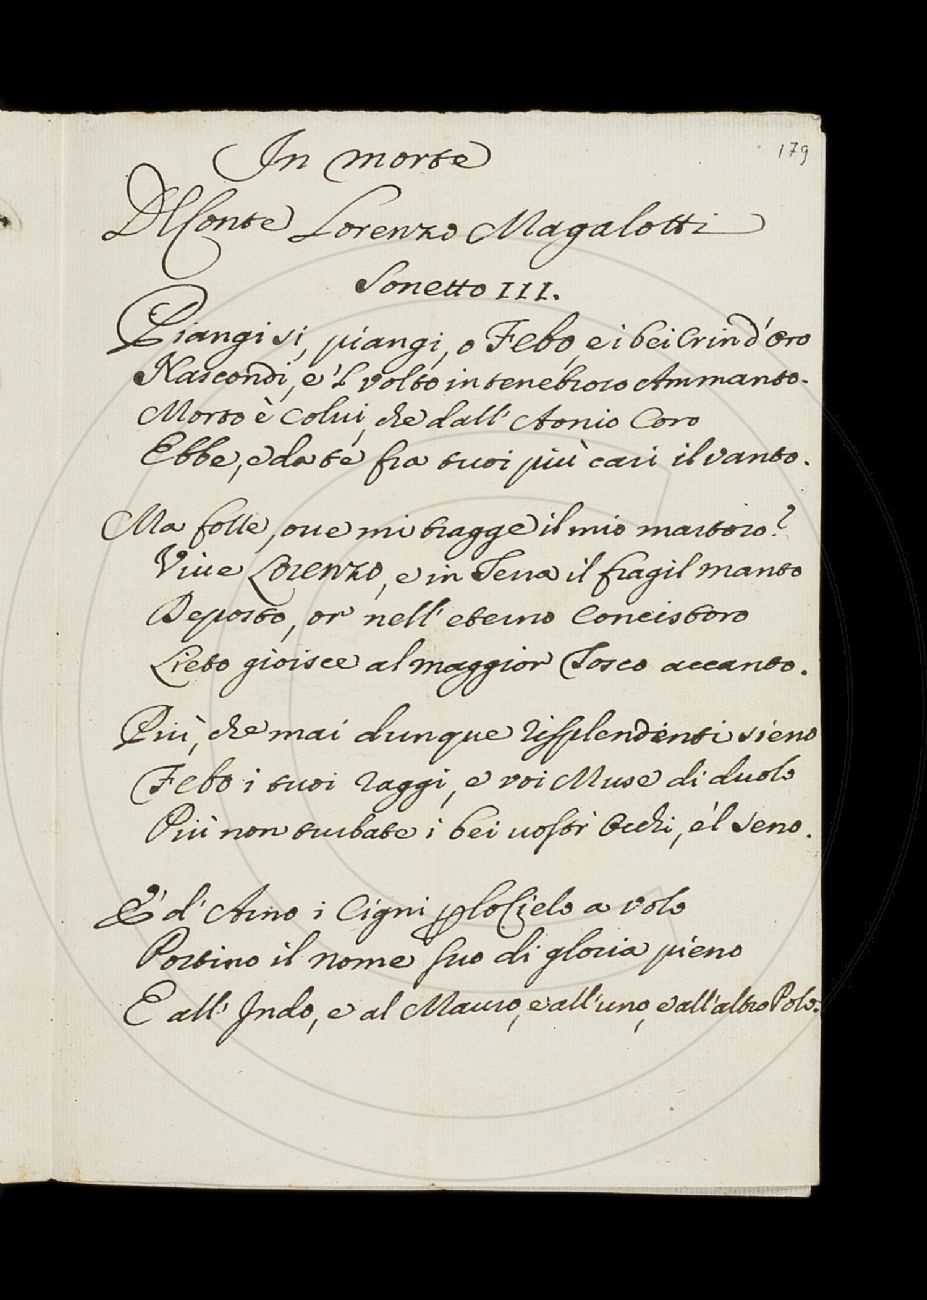 179
In morte
Del Conte Lorenzo Magalotti
Sonetto III.
Piangi si, piangi, o Febo, e i bei Crin d'Oro
Nascondi, e 'l volto in tenebroso Ammanto.
Morto è Colui, che dall' Aonio Coro
Ebbe, e da té fra tuoi più cari il vanto.
Ma folle, oue mi tragge il mio martoro?
Viue Lorenzo, e in Terra il fragil manto
Deposto, or nell' eterno Concistoro
Lieto gioisce al maggior Tosco accanto.
Più, che mai dunque risplendenti sieno
Febo i tuoi raggi, e voi Muse di duolo
Più non turbate i bei uostri Occhi, e'l seno.
E d' Arno i Cigni p lo Cielo a volo
Portino il nome suo di gloria pieno
E all' Indo, e al Mauro, e all'uno, e all'altro Polo.